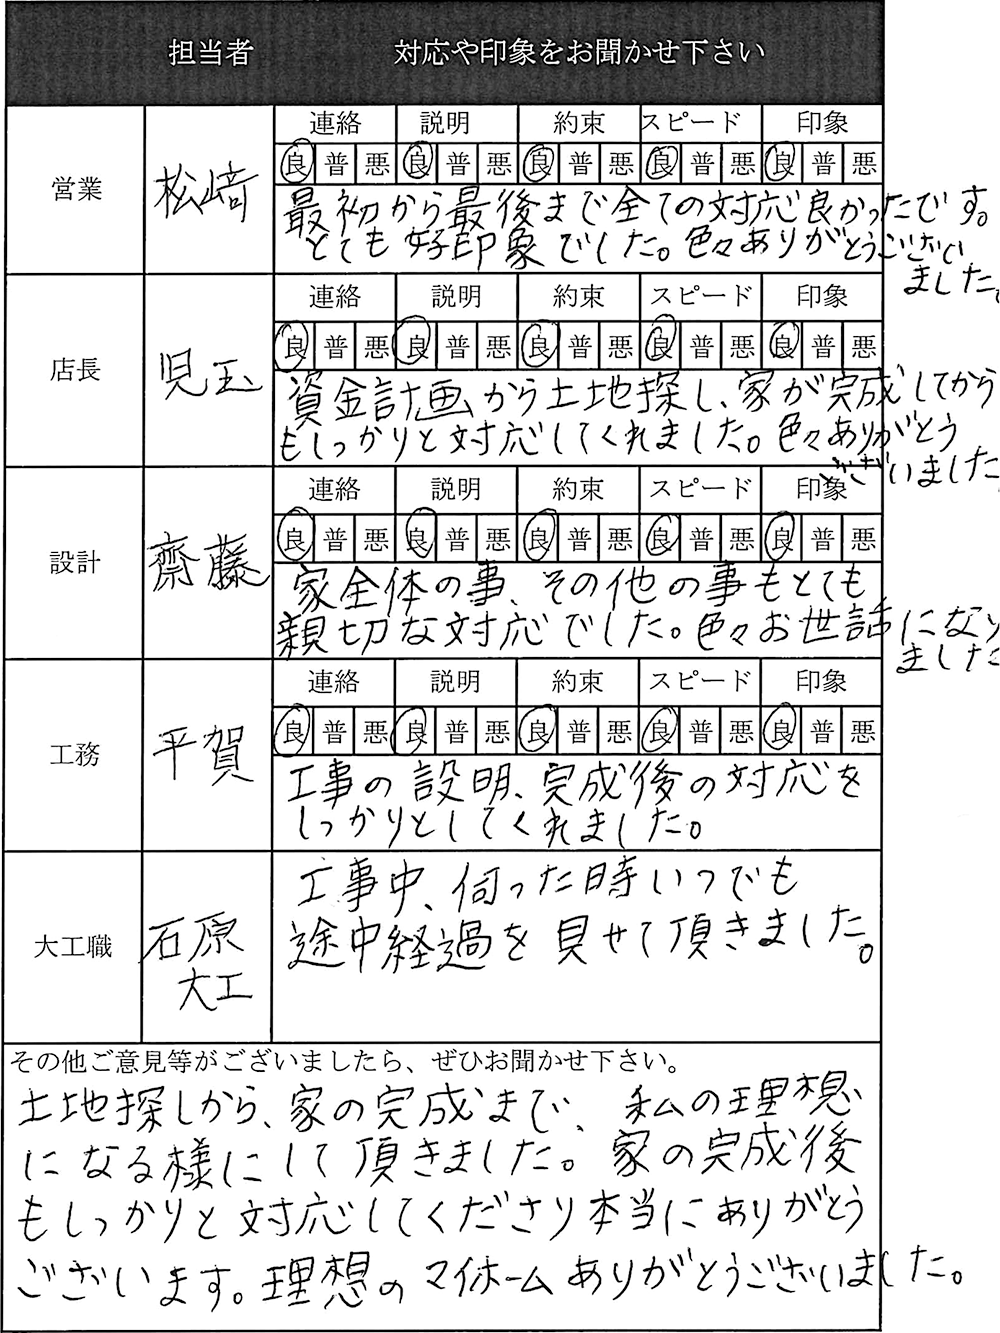 担当者 対応や印象をお聞かせ下さい
連絡 説明 約束 スピード 印象
良 普 悪 良 普 悪 良 普 悪 良 普 悪 良 普 悪
営業 松﨑
最初から最後まで全ての対応良かったです。
とても好印象でした。色々ありがとうござい
ました。
連絡 説明 約束 スピード 印象
良 普 悪 良 普 悪 良 普 悪 良 普 悪 良 普 悪
店長 児玉
資金計画から土地探し、家が完成してから
もしっかりと対応してくれました。色々ありがとう
ございました
連絡 説明 約束 スピード 印象
良 普 悪 良 普 悪 良 普 悪 良 普 悪 良 普 悪
設計 齋藤
家全体の事、その他の事もとても
親切な対応でした。色々お世話になり
ました
連絡 説明 約束 スピード 印象
良 普 悪 良 普 悪 良 普 悪 良 普 悪 良 普 悪
工務 平賀
工事の説明、完成後の対応を
しっかりとしてくれました。
大工職 石原
大工
工事中、伺った時いつでも
途中経過を見せて頂きました。
その他ご意見等がございましたら、ぜひお聞かせ下さい。
土地探しから、家の完成まで、私の理想
になる様にして頂きました。家の完成後
もしっかりと対応してくださり本当にありがとう
ございます。理想のマイホームありがとうございました。